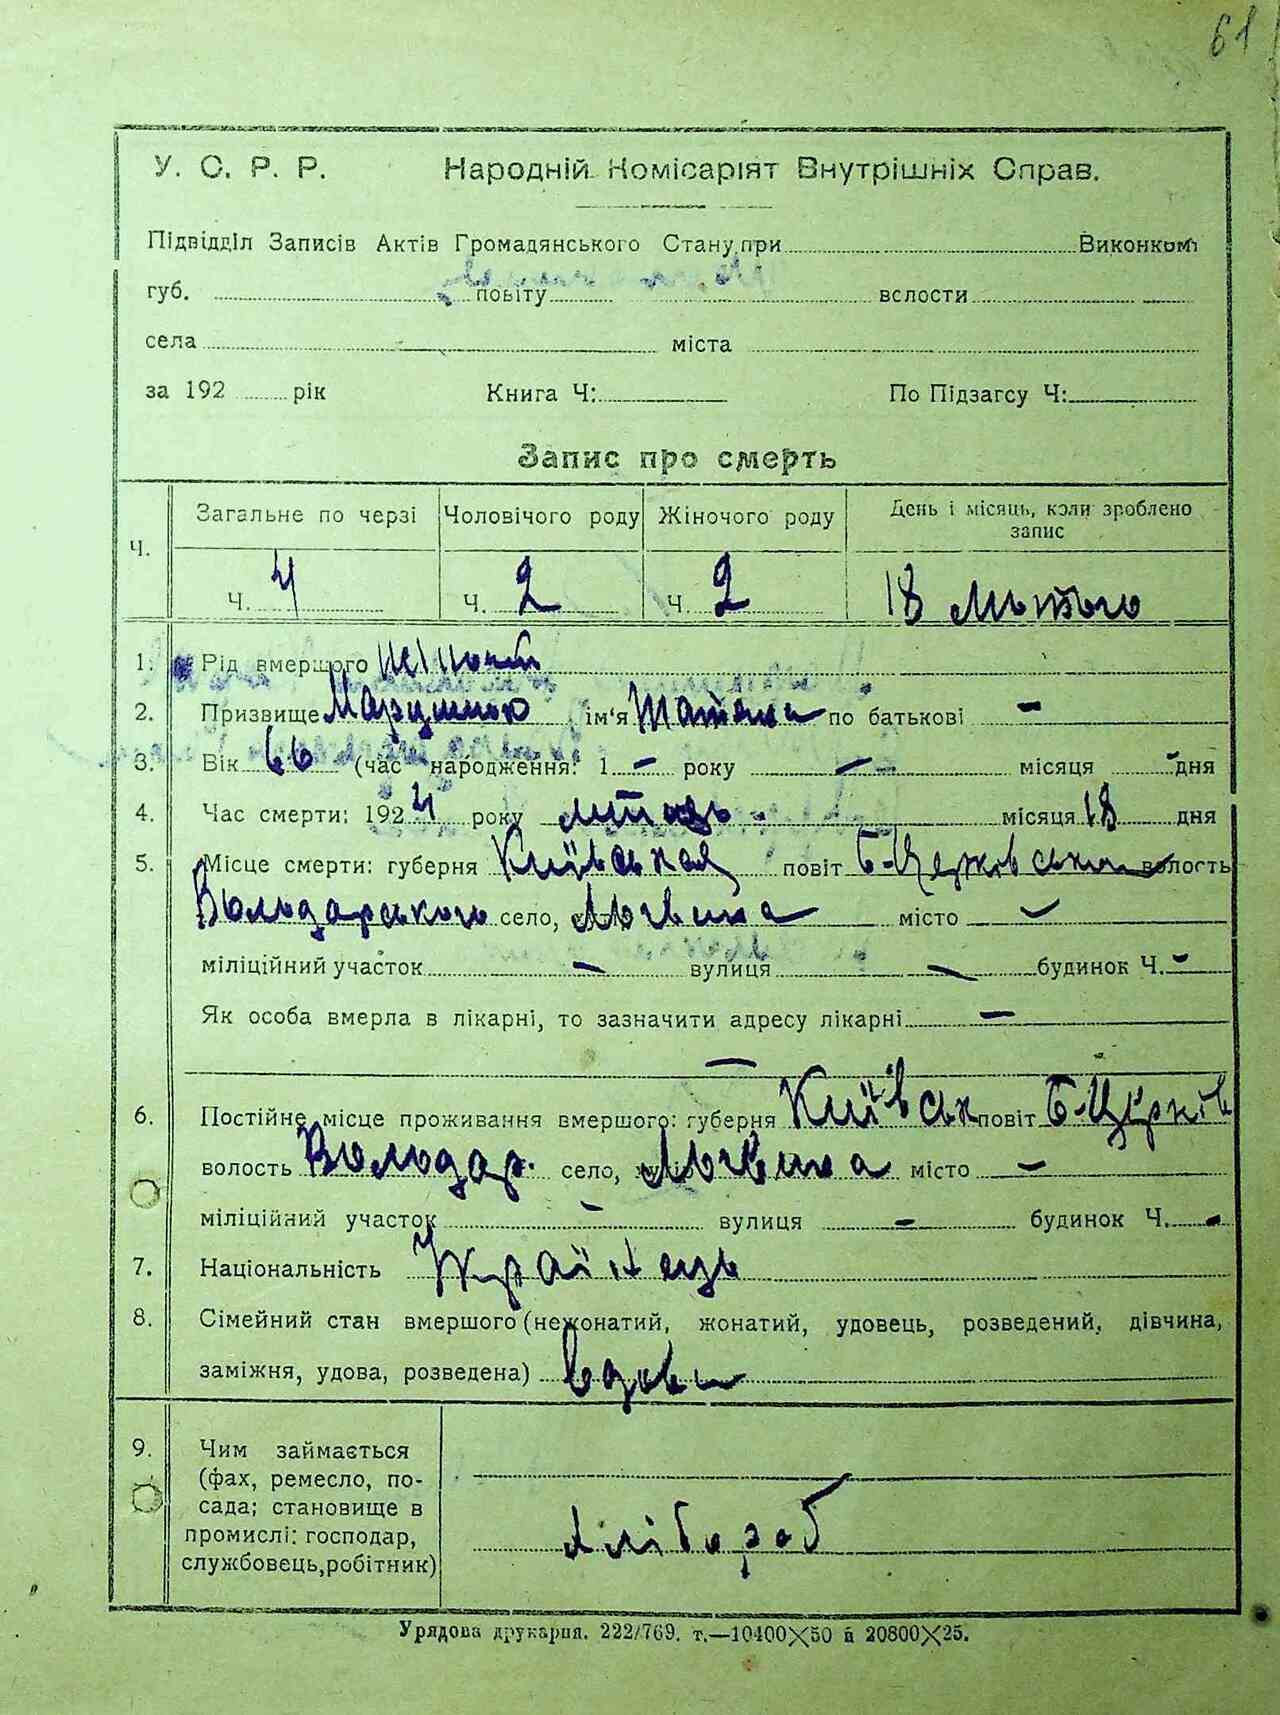 61
У. С. Р. Р. Народній Комісаріят Внутрішніх Справ.
Підвідділ Записів Актів Громадянського Стану при Виконком
губ. повіту вслости
села міста
за 192 рік Книга Ч: По Підзагсу Ч:
Запис про смерть
Ч. Загальне по черзі Чоловічого роду Жіночого роду День і місяць, коли зроблено
запис
Ч. 4 Ч. 2 Ч. 2 18 лютого
1. Рід вмершого
2. Призвище ім'я Татяна по батькові —
3. Вік 66 (час народження: 1 — року — місяця - дня
4. Час смерти: 1924 року лютаго місяця 18 дня
5. Місце смерти: губерня Київська повіт Б-Церковський волость
Володарського село, Логвина місто —
міліційний участок — вулиця — будинок Ч. -
Як особа вмерла в лікарні, то зазначити адресу лікарні —
—
6. Постійне місце проживання вмершого: губерня Київськ повіт Б-Церків
волость Володар. село, Логвина місто —
міліційний участок - вулиця - будинок Ч. -
7. Національність Українець
8. Сімейний стан вмершого (нежонатий, жонатий, удовець, розведений, дівчина,
заміжня, удова, розведена) вдова
9. Чим займається
(фах, ремесло, по-
сада; становище в
промислі: господар,
службовець, робітник)
хлібороб
Урядова друкарня. 222/769. т.—10400X50 й 20800X25.